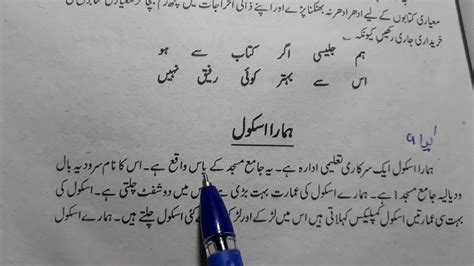 معیاری کتابوں کے لیے ادھر ادھر نہ بھٹکنا پڑے اور اپنے ذاتی اخراجات میں کچھ
خریداری جاری رکھیں کیونکہ۔
ہم جلیسی اگر کتاب سے ہو
اس سے بہتر کوئی رفیق نہیں
ہمارا اسکول
ہمارا اسکول ایک سرکاری تعلیمی ادارہ ہے۔ یہ جامع مسجد کے پاس واقع ہے۔ اس کا نام سرودیہ بال
ودیالیہ جامع مسجد 1 ہے۔ ہمارے اسکول کی عمارت بہت بڑی ہے اس میں دو شفٹ چلتی ہے۔ اسکول کی
بہت سی عمارتیں اسکول کمپلیکس کہلاتی ہیں اس میں لڑکے اور لڑکیوں کے کئی اسکول چلتے ہیں۔ ہمارے اسکول